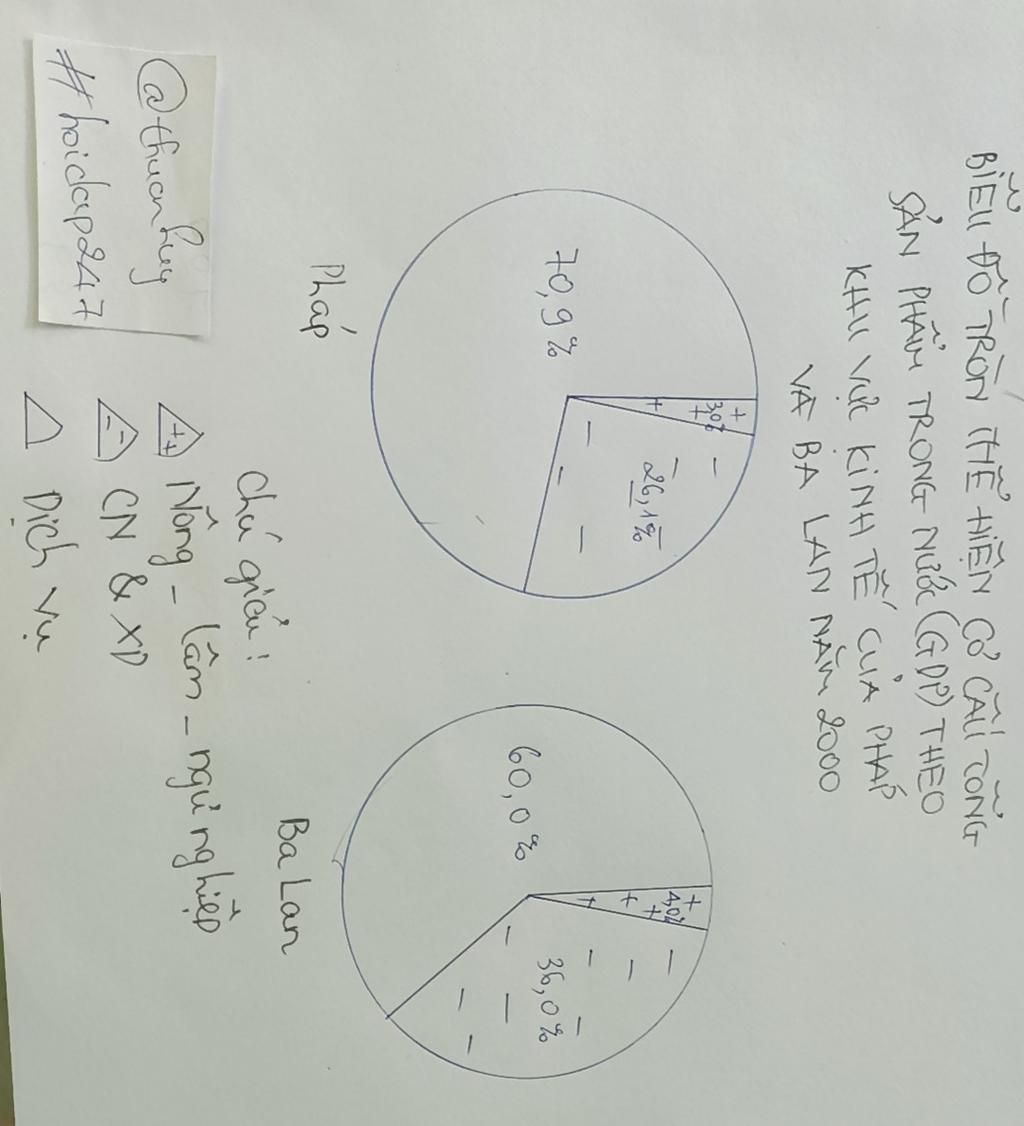 BIỂU ĐỒ TRÒN THỂ HIỆN CƠ CẤU TỔNG
SẢN PHẨM TRONG NƯỚC (GDP) THEO
KHU VỰC KINH TẾ CỦA PHÁP
VÀ BA LAN NĂM 2000
3,0%
26,1%
70,9%
Pháp
4,0%
36,0%
60,0%
Ba Lan
Chú giải:
Nông - lâm - ngư nghiệp
CN & XD
Dịch vụ
@thuanhuy
#hoidap247